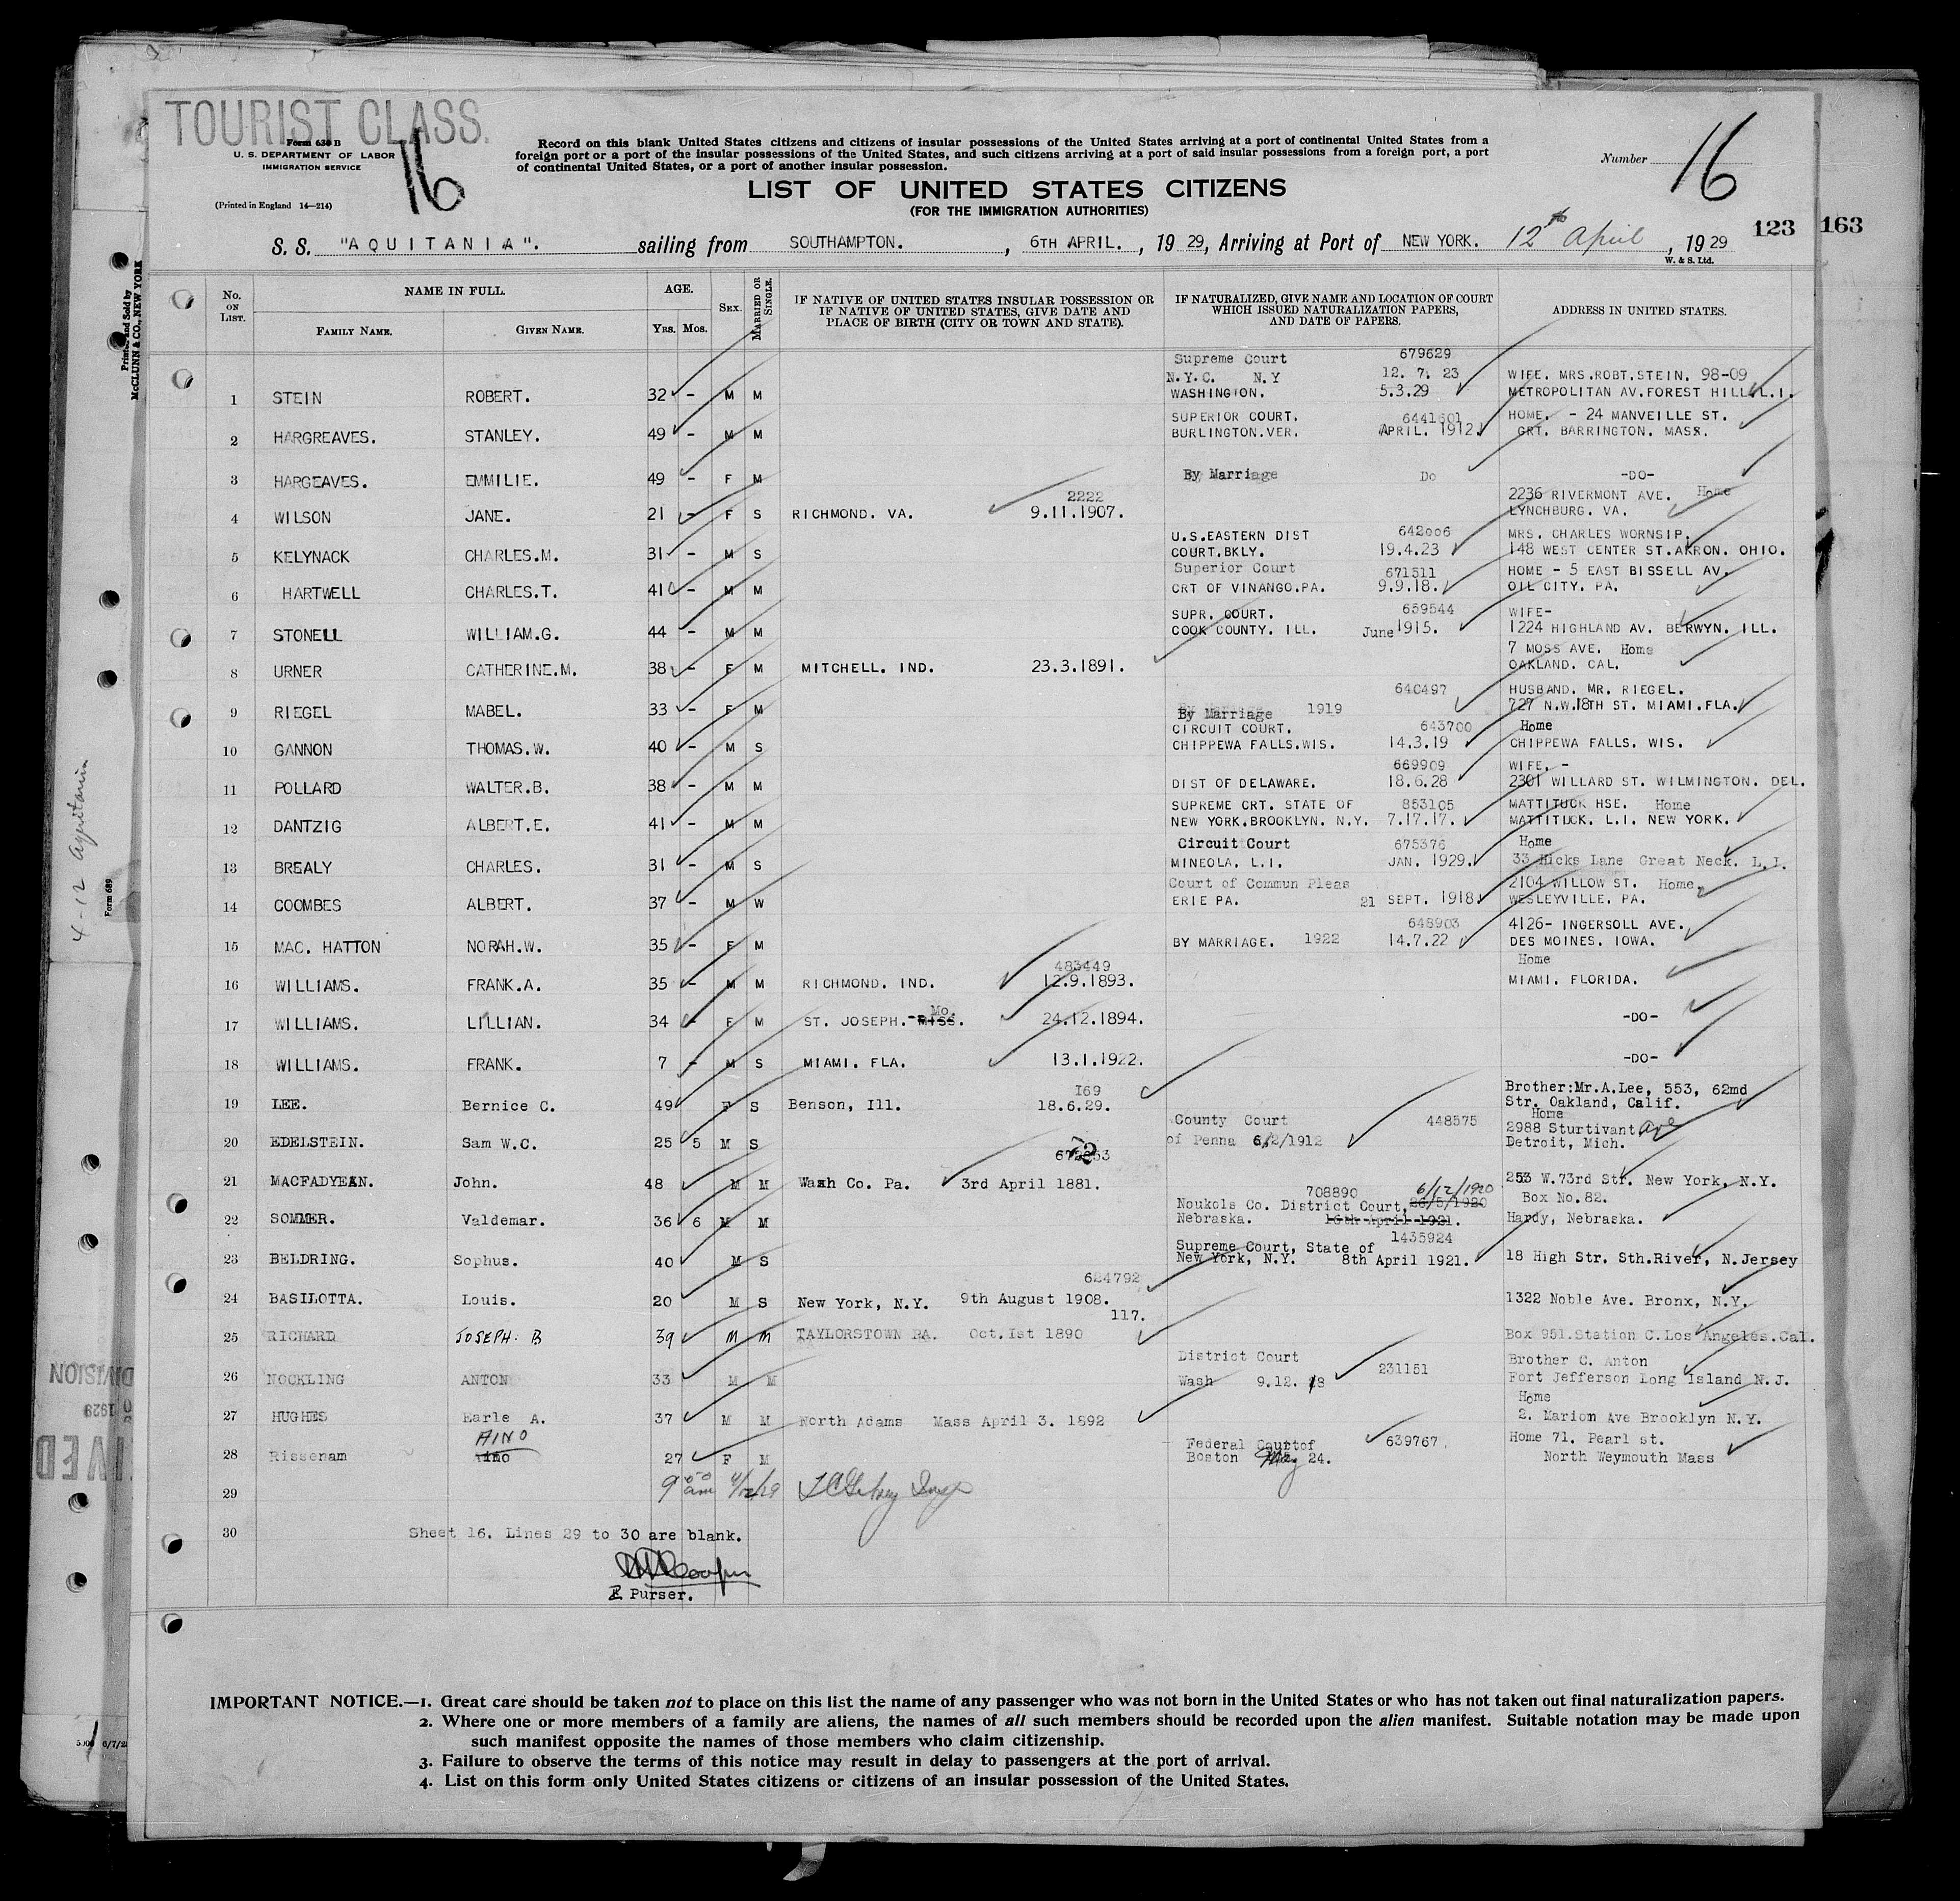 TOURIST CLASS.
Form 630 B
U. S. DEPARTMENT OF LABOR
IMMIGRATION SERVICE
(Printed in England 14—214)
16
Record on this blank United States citizens and citizens of insular possessions of the United States arriving at a port of continental United States from a
foreign port or a port of the insular possessions of the United States, and such citizens arriving at a port of said insular possessions from a foreign port, a port
of continental United States, or a port of another insular possession.
Number 16
LIST OF UNITED STATES CITIZENS
(FOR THE IMMIGRATION AUTHORITIES)
123 163
S. S. "AQUITANIA". sailing from SOUTHAMPTON. , 6TH APRIL. , 19 29, Arriving at Port of NEW YORK. 12th April , 19 29
W. & S. Ltd.
Printed and Sold by
McCLUNN & CO., NEW YORK
No. ON LIST.
NAME IN FULL.
FAMILY NAME.
GIVEN NAME.
AGE.
YRS. MOS.
SEX.
MARRIED OR SINGLE.
IF NATIVE OF UNITED STATES INSULAR POSSESSION OR
IF NATIVE OF UNITED STATES, GIVE DATE AND
PLACE OF BIRTH (CITY OR TOWN AND STATE).
IF NATURALIZED, GIVE NAME AND LOCATION OF COURT
WHICH ISSUED NATURALIZATION PAPERS,
AND DATE OF PAPERS.
ADDRESS IN UNITED STATES.
Supreme Court 679629
N.Y.C. N.Y 12. 7. 23 WIFE. MRS.ROBT.STEIN. 98-09
1 STEIN ROBERT. 32 - M M WASHINGTON. 5.3.29 METROPOLITAN AV.FOREST HILL.L.I.
SUPERIOR COURT. 6441601 HOME. - 24 MANVEILLE ST.
2 HARGREAVES. STANLEY. 49 - M M BURLINGTON.VER. APRIL. 1912. GRT. BARRINGTON. MASS.
3 HARGEAVES. EMMILIE. 49 - F M By Marriage Do -DO-
2222 2236 RIVERMONT AVE. Home
4 WILSON JANE. 21 - F S RICHMOND. VA. 9.11.1907. LYNCHBURG. VA.
U.S.EASTERN DIST 642006 MRS. CHARLES WORNSIP.
5 KELYNACK CHARLES.M. 31 - M S COURT.BKLY. 19.4.23 148 WEST CENTER ST.AKRON. OHIO.
Superior Court 671511 HOME - 5 EAST BISSELL AV.
6 HARTWELL CHARLES.T. 41 - M M CRT OF VINANGO.PA. 9.9.18. OIL CITY. PA.
SUPR. COURT. 659544 WIFE-
7 STONELL WILLIAM.G. 44 - M M COOK COUNTY. ILL. June 1915. 1224 HIGHLAND AV. BERWYN. ILL.
7 MOSS AVE. Home
8 URNER CATHERINE.M. 38 - F M MITCHELL. IND. 23.3.1891. OAKLAND. CAL.
640497 HUSBAND. MR. RIEGEL.
9 RIEGEL MABEL. 33 - F M By Marriage 1919 727 N.W.18TH ST. MIAMI.FLA.
CIRCUIT COURT. 643700 Home
10 GANNON THOMAS.W. 40 - M S CHIPPEWA FALLS.WIS. 14.3.19 CHIPPEWA FALLS. WIS.
669909 WIFE. -
11 POLLARD WALTER.B. 38 - M M DIST OF DELAWARE. 18.6.28 2301 WILLARD ST. WILMINGTON. DEL.
SUPREME CRT. STATE OF 853105 MATTITUCK HSE. Home
12 DANTZIG ALBERT.E. 41 - M M NEW YORK.BROOKLYN. N.Y. 7.17.17. MATTITUCK. L.I. NEW YORK.
Circuit Court 675376 Home
13 BREALY CHARLES. 31 - M S MINEOLA. L.I. JAN. 1929. 33 Hicks Lane Great Neck. L.I.
Court of Commun Pleas 2104 WILLOW ST. Home.
14 COOMBES ALBERT. 37 - M W ERIE PA. 21 SEPT. 1918. WESLEYVILLE. PA.
648903 4126- INGERSOLL AVE.
15 MAC. HATTON NORAH.W. 35 - F M BY MARRIAGE. 1922 14.7.22 DES MOINES. IOWA.
483449 Home
16 WILLIAMS. FRANK.A. 35 - M M RICHMOND. IND. 12.9.1893. MIAMI. FLORIDA.
Mo.
17 WILLIAMS. LILLIAN. 34 - F M ST. JOSEPH. - MISS. 24.12.1894. -DO-
18 WILLIAMS. FRANK. 7 - M S MIAMI. FLA. 13.1.1922. -DO-
I69 Brother:Mr.A.Lee, 553, 62md
19 LEE. Bernice C. 49 F S Benson, Ill. 18.6.29. Str. Oakland, Calif.
County Court 448575 Home
2988 Sturtivant Ave
20 EDELSTEIN. Sam W.C. 25 5 M S of Penna 6/2/1912 Detroit, Mich.
21 MACFADYEAN. John. 48 M M Wash Co. Pa. 3rd April 1881. 253 W.73rd Str. New York, N.Y.
708890 6/12/1920 Box No.82.
Noukols Co. District Court, 26/5/1920
22 SOMMER. Valdemar. 36 6 M M Nebraska. 16th April 1921. Hardy, Nebraska.
1435924
Supreme Court, State of
23 BELDRING. Sophus. 40 M S New York, N.Y. 8th April 1921. 18 High Str. Sth.River, N.Jersey
624792
24 BASILOTTA. Louis. 20 M S New York, N.Y. 9th August 1908. 1322 Noble Ave. Bronx, N.Y.
117.
25 RICHARD JOSEPH. B 39 M M TAYLORSTOWN PA. Oct.Ist 1890 Box 951.Station C.Los Angeles.Cal.
District Court 231151 Brother C. Anton
26 NOCKLING ANTON 33 M M Wash 9.12. 18 Fort Jefferson Long Island N.J.
Home
27 HUGHES Earle A. 37 M M North Adams Mass April 3. 1892 2. Marion Ave Brooklyn N.Y.
AINO Federal Courtof 639767. Home 71. Pearl st.
28 Rissenam 27 F M Boston May 24. North Weymouth Mass
29 9 00 am 4/12/29
30 Sheet 16. Lines 29 to 30 are blank.
Purser.
IMPORTANT NOTICE.—1. Great care should be taken not to place on this list the name of any passenger who was not born in the United States or who has not taken out final naturalization papers.
2. Where one or more members of a family are aliens, the names of all such members should be recorded upon the alien manifest. Suitable notation may be made upon
such manifest opposite the names of those members who claim citizenship.
3. Failure to observe the terms of this notice may result in delay to passengers at the port of arrival.
4. List on this form only United States citizens or citizens of an insular possession of the United States.
4-12 Aquitania
Form 689